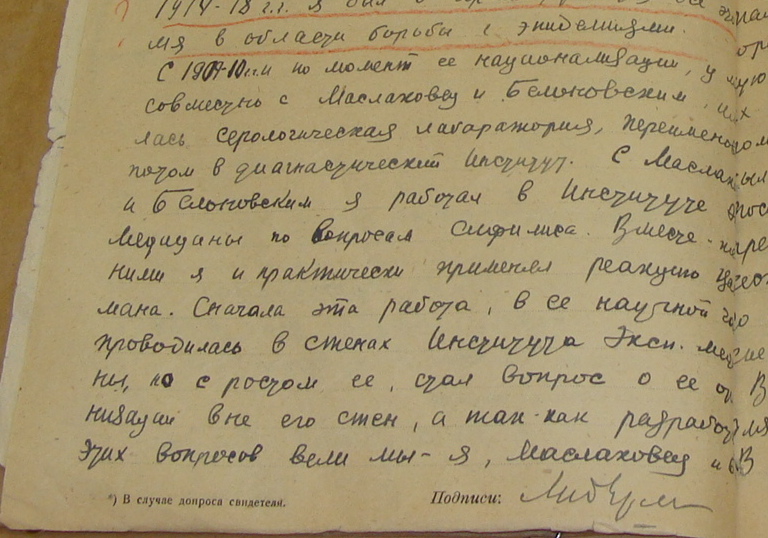 1914-18 г.г. я был
мя в области борьбы с эпидемиями.
С 1909-10 г. и по момент ее национализации, у
совместно с Маслаковец и Белоновским
лась серологическая лаборатория, переимено
потом в диагностический Институт. С Маслак
и Белоновским я работал в Институте
Медицины по вопросам сифилиса. Вместе
ними я и практически применял реакцию Вассер
мана. Сначала эта работа, в ее научной
проводилась в стенах Института Эксп. мед
ны, но с ростом ее, стал вопрос о ее ор
низации вне его стен, а так-как разработ
этих вопросов вели мы- я, Маслаковец и
*) В случае допроса свидетеля. Подписи: